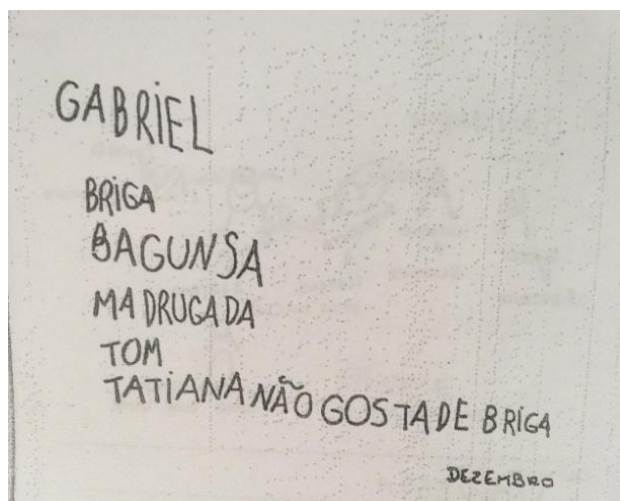 GABRIEL
BRIGA
BAGUNSA
MADRUGADA
TOM
TATIANA NÃO GOSTA DE BRIGA
DEZEMBRO